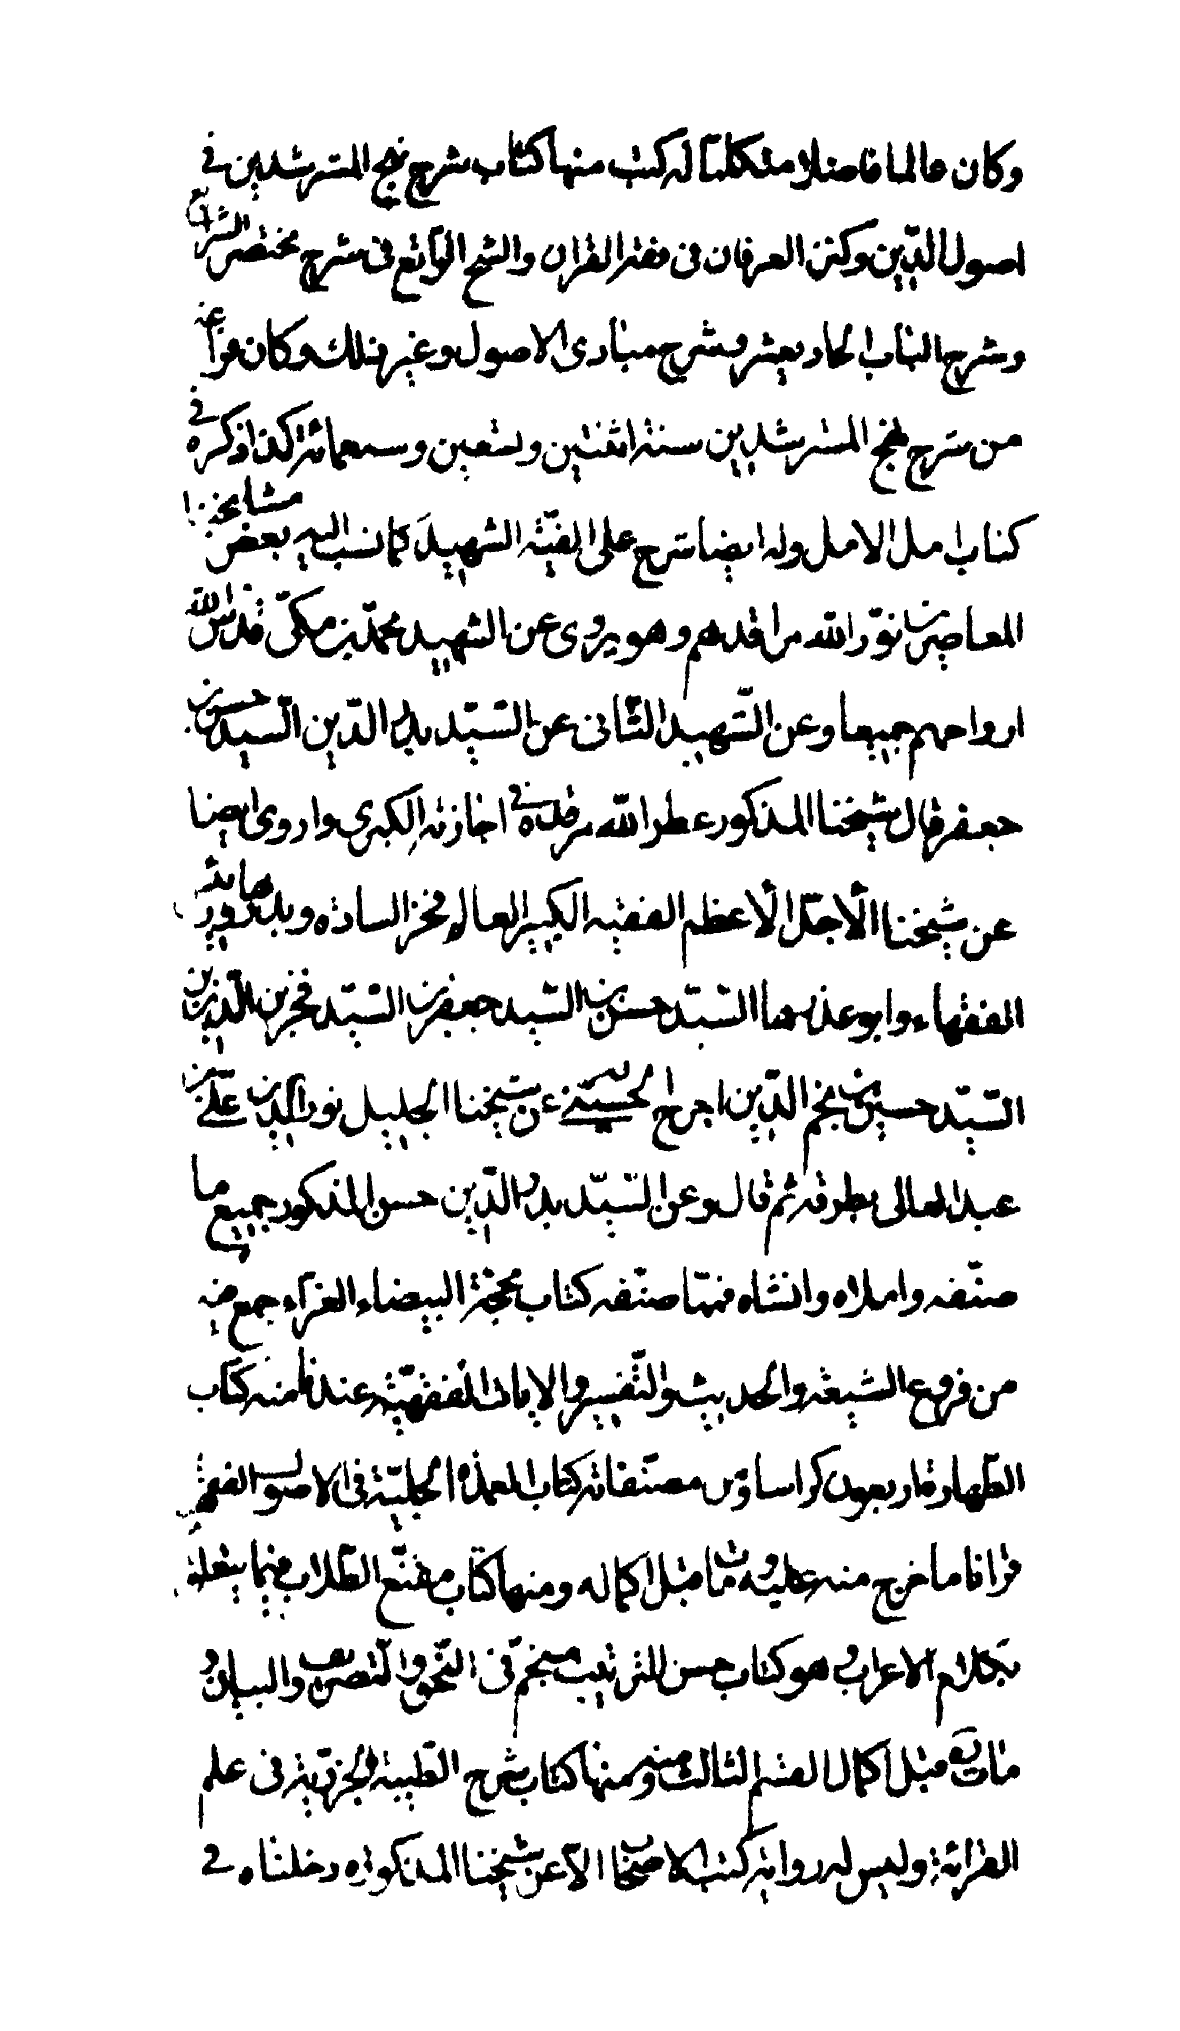 وكان عالما فاضلا متكلما له كتب منها كتاب شرح نهج المسترشدين في
اصول الدّين وكنز العرفان في فقه القران والتنقيح الرّائع في شرح مختصر الشرائع
وشرح الباب الحاد يعشر وشرح مبادى الاصول وغير ذلك وكان فراغه
من شرح نهج المسترشدين سنة اثنتين وتسعين وسبعمائة كذا ذكره في
كتاب امل الامل وله ايضا شرح على الفيّة الشهيد كما نسب اليه بعض مشايخنا
المعاصرين نوّر الله مراقدهم وهو يروى عن الشهيد محمّد بن مكىّ قدس الله
ارواحهم جميعا وعن الشّهيد الثّانى عن السّيّد بدر الدّين السّيد حسن بن
جعفر قال شيخنا المذكور عطر الله مرقده في اجازته الكبرى واروى ايضا
عن شيخنا الأجلّ الأعظم الفقيه الكبير العالم فخر السادة وبدرها ورئيس
الفقهاء وابو عذرها السّيّد حسن بن السّيد جعفر بن السّيّد فخر الدّين بن
السّيّد حسن بن نجم الدّين بن الاعرج الحسينى عن شيخنا الجليل نور الدّين علىّ بن
عبد العالى بطرقه ثم قال وعن السّيّد بدر الدّين حسن المذكور جميع ما
صنّفه واملاه وانشاه فممّا صنّفه كتاب محجّة البيضاء والغرّاء جمع فيه
من فروع الشّيعة والحديث والتّفسير والايات الفقهيّة عندنا منه كتاب
الطّهارة اربعون كراسا ومن مصنّفاته كتاب العمدة الجليّة في الاصول الفقهيّة
قرانا ما خرج منه عليه ومات قبل اكماله ومنها كتاب مقنع الطّلاب فيما يتعلق
بكلام الاعراب وهو كتاب حسن الترتيب ضخم في النّحو والتّصريف والبيان و
مات قبل اكمال القسم الثالث منه ومنها كتاب شرح الطّيبة الجزريّة في علم
القرائة وليس له رواية كتب الاصحاب الاّ عن شيخنا المذكور ادخلناه في